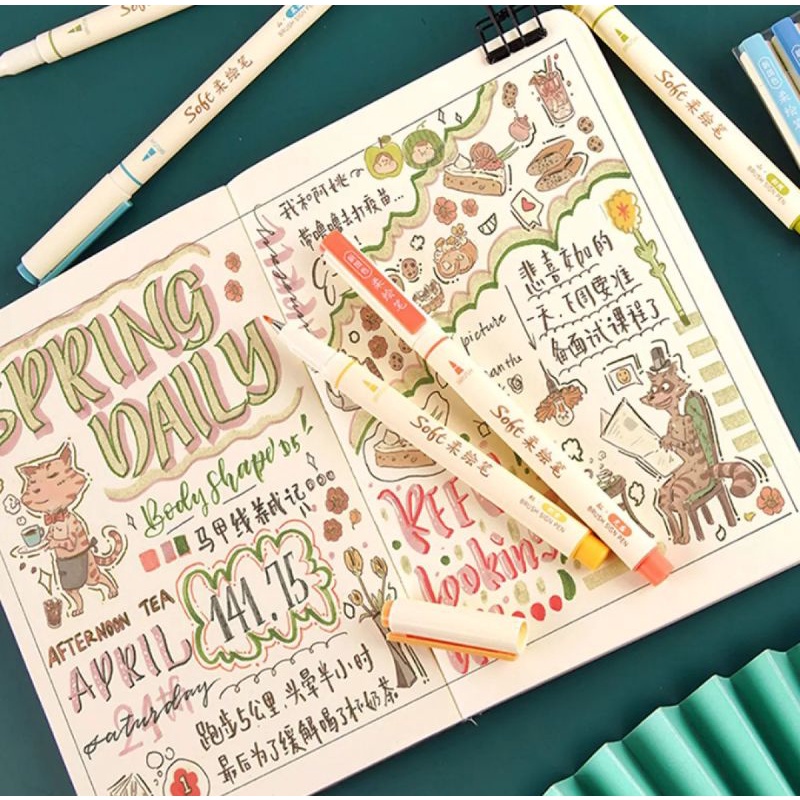 Soft
Soft 柔绘笔
BRUSH SIGN PEN
Soft 柔绘笔
BRUSH SIGN PEN
我和阿姚
常噜噜去打疫苗...
悲喜交加的
一天,下周要准
备面试课程了
picture
SPRING
DAILY
Body shape D5
马甲线养成记
141.75
AFTERNOON TEA
APRIL
24th
saturday
跑步5公里,头晕半小时
最后为了缓解喝了杯奶茶
1
KEEP
looking
柔绘笔
Soft 柔绘笔
BRUSH SIGN PEN
Soft 柔绘笔
BRUSH SIGN PEN